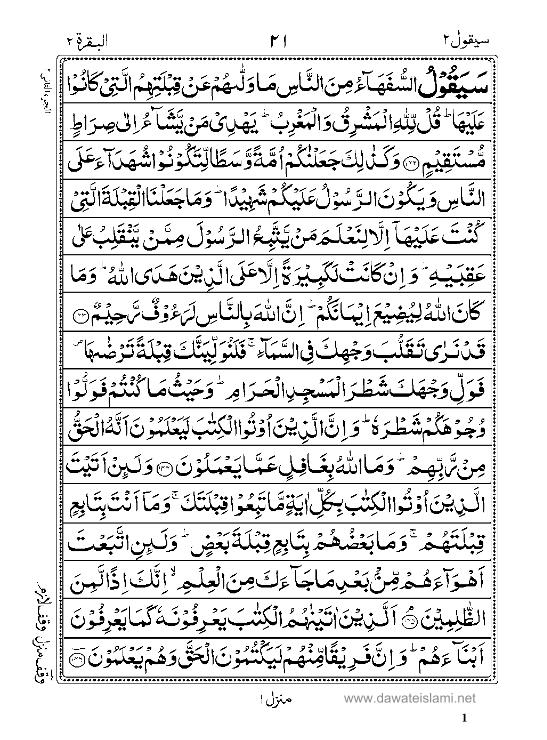 سيقول ٢ ٢١ البقرة ٢
الجزء الثانى
سَيَقُوْلُ السُّفَهَآءُ مِنَ النَّاسِ مَا وَلّٰىهُمْ عَنْ قِبْلَتِهِمُ الَّتِیْ كَانُوْا
عَلَیْهَا ؕ قُلْ لِّلّٰهِ الْمَشْرِقُ وَ الْمَغْرِبُ ؕ یَهْدِیْ مَنْ یَّشَآءُ اِلٰى صِرَاطٍ
مُّسْتَقِیْمٍ ﴿۱۴۲﴾ وَ كَذٰلِكَ جَعَلْنٰكُمْ اُمَّةً وَّسَطًا لِّتَكُوْنُوْا شُهَدَآءَ عَلَى
النَّاسِ وَ یَكُوْنَ الرَّسُوْلُ عَلَیْكُمْ شَهِیْدًا ؕ وَ مَا جَعَلْنَا الْقِبْلَةَ الَّتِیْ
كُنْتَ عَلَیْهَاۤ اِلَّا لِنَعْلَمَ مَنْ یَّتَّبِعُ الرَّسُوْلَ مِمَّنْ یَّنْقَلِبُ عَلٰى
عَقِبَیْهِ ؕ وَ اِنْ كَانَتْ لَكَبِیْرَةً اِلَّا عَلَى الَّذِیْنَ هَدَى اللّٰهُ ؕ وَ مَا
كَانَ اللّٰهُ لِیُضِیْعَ اِیْمَانَكُمْ ؕ اِنَّ اللّٰهَ بِالنَّاسِ لَرَءُوْفٌ رَّحِیْمٌ ﴿۱۴۳﴾
قَدْ نَرٰى تَقَلُّبَ وَجْهِكَ فِی السَّمَآءِ ۚ فَلَنُوَلِّیَنَّكَ قِبْلَةً تَرْضٰىهَا ۪
فَوَلِّ وَجْهَكَ شَطْرَ الْمَسْجِدِ الْحَرَامِ ؕ وَ حَیْثُ مَا كُنْتُمْ فَوَلُّوْا
وُجُوْهَكُمْ شَطْرَهٗ ؕ وَ اِنَّ الَّذِیْنَ اُوْتُوا الْكِتٰبَ لَیَعْلَمُوْنَ اَنَّهُ الْحَقُّ
مِنْ رَّبِّهِمْ ؕ وَ مَا اللّٰهُ بِغَافِلٍ عَمَّا یَعْمَلُوْنَ ﴿۱۴۴﴾ وَ لَىِٕنْ اَتَیْتَ
الَّذِیْنَ اُوْتُوا الْكِتٰبَ بِكُلِّ اٰیَةٍ مَّا تَبِعُوْا قِبْلَتَكَ ۚ وَ مَاۤ اَنْتَ بِتَابِعٍ
قِبْلَتَهُمْ ۚ وَ مَا بَعْضُهُمْ بِتَابِعٍ قِبْلَةَ بَعْضٍ ؕ وَ لَىِٕنِ اتَّبَعْتَ
اَهْوَآءَهُمْ مِّنْۢ بَعْدِ مَا جَآءَكَ مِنَ الْعِلْمِ ۙ اِنَّكَ اِذًا لَّمِنَ
الظّٰلِمِیْنَ ﴿۱۴۵﴾ اَلَّذِیْنَ اٰتَیْنٰهُمُ الْكِتٰبَ یَعْرِفُوْنَهٗ كَمَا یَعْرِفُوْنَ
اَبْنَآءَهُمْ ؕ وَ اِنَّ فَرِیْقًا مِّنْهُمْ لَیَكْتُمُوْنَ الْحَقَّ وَ هُمْ یَعْلَمُوْنَ ﴿۱۴۶﴾
وقف منزل وقف لازم
منزل ١
www.dawateislami.net
1